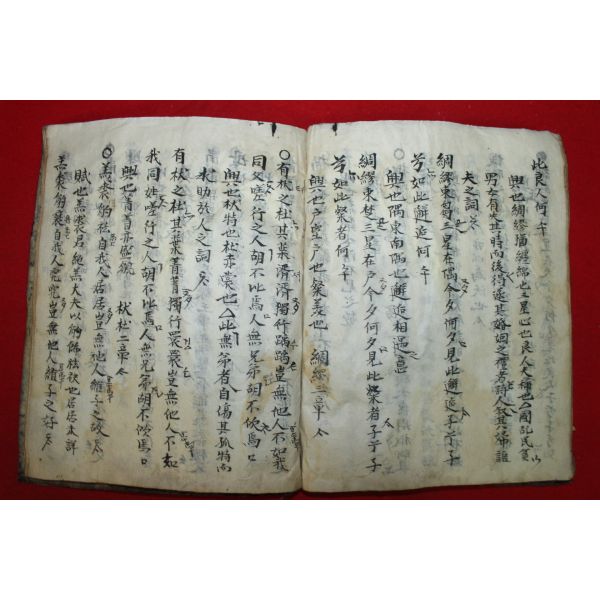 此良人何
興也綢繆猶纏綿也三星心也良人夫稱也○國亂民貧
男女有失其時而後得遂其婚姻之禮者詩人叙其婦語
夫之詞
綢繆束芻三星在隅今夕何夕見此邂逅子子子
兮如此邂逅何
興也隅東南隅也邂逅相遇意
綢繆束楚三星在戶今夕何夕見此粲者子子子
兮如此粲者何
興也戶室戶也粲美也 綢繆三章
○有杕之杜其葉湑湑獨行踽踽豈無他人不如我
同父嗟行之人胡不比焉人無兄弟胡不佽焉
興也杕特也杜赤棠也此無弟者自傷其孤特而
求助於人之詞
有杕之杜其葉菁菁獨行睘睘豈無他人不如
我同姓嗟行之人胡不比焉人無兄弟胡不佽焉
興也菁菁亦盛貌 杕杜二章
○羔裘豹袪自我人居居豈無他人維子之故
賦也羔裘君純羔大夫以豹飾袪也居居未詳
羔裘豹褎自我人究究豈無他人維子之好